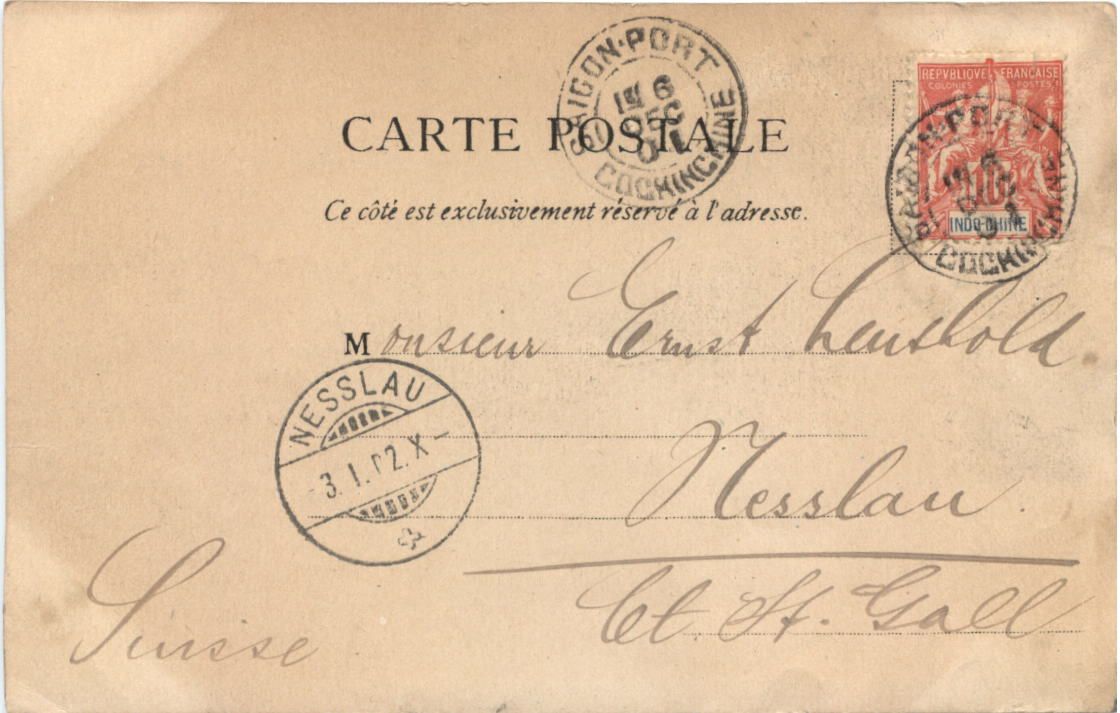 CARTE POSTALE
Ce côté est exclusivement réservé à l'adresse.
SAIGON-PORT
1E 6
DEC
01
COCHINCHINE
REPVBLIQVE FRANÇAISE
COLONIES POSTES
10
INDO-CHINE
SAIGON-PORT
COCHINCHINE
Monsieur Ernst Leuthold
NESSLAU
3.I.02.X-
Nesslau.
Ct. St. Gall
Suisse